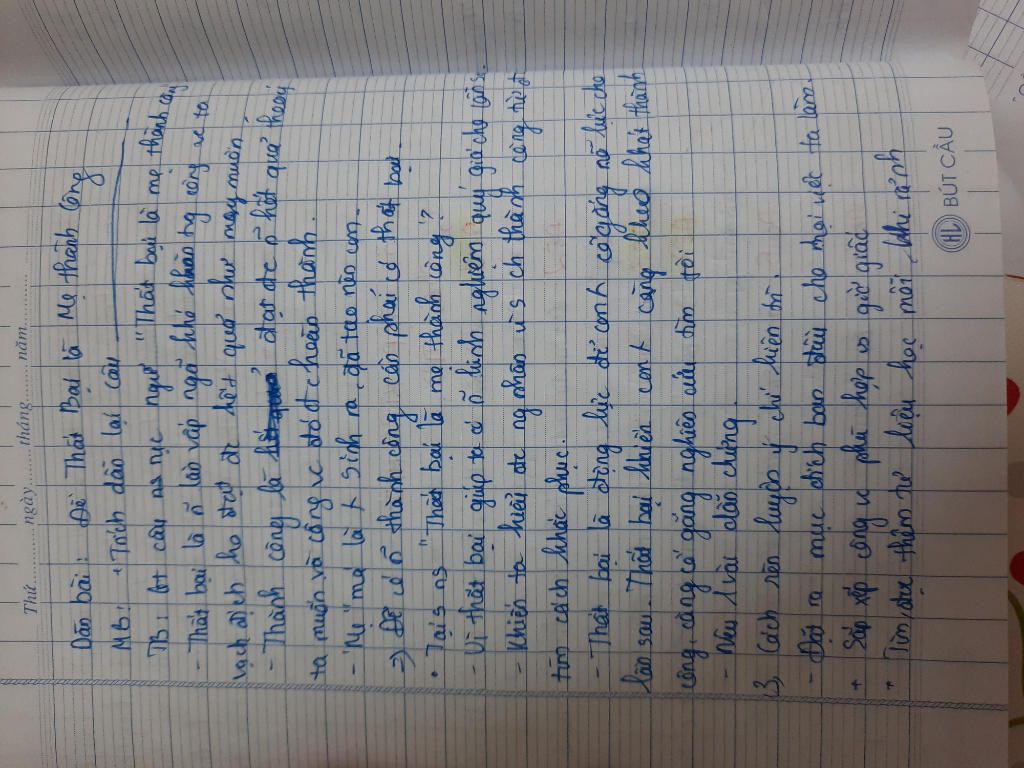 Thứ ............ ngày ............ tháng ............ năm ............
Dàn bài : Đề Thất Bại là Mẹ thành Công
MB : + Trích dẫn lại câu
TB : gt câu tục ngữ "Thất bại là mẹ thành công
- Thất bại là ~ lần vấp ngã khó khăn trg công vc ta
vạch địch ko đạt đc kết quả như mong muốn
- Thành công là đạt đc ~ kết quả theo ý
ta muốn và công vc đó đc hoàn thành.
- "Mẹ" má là sinh ra, đã tạo nên con.
=> Để có ~ thành công cần phải có thất bại.
• Tại s ns "Thất bại là mẹ thành công"?
- Vì thất bại giúp ta có ~ kinh nghiệm quý giá cho lần sau
- Khiến ta hiểu đc ng nhân vì s ch thành công từ đó
tìm cách khắc phục.
- Thất bại là động lực để con cố gắng nỗ lực cho
lần sau. Thất bại khiến con càng khao khát thành
công, càng cố gắng nghiên cứu tìm tòi
- Nêu 1 vài dẫn chứng.
3, Cách rèn luyện ý chí kiên trì.
- Đặt ra mục đích ban đầu cho mọi việc ta làm.
+ Sắp xếp công vc phù hợp giờ giấc
+ Tìm đọc thêm tư liệu học mỗi khi rảnh
BÚT CẦU